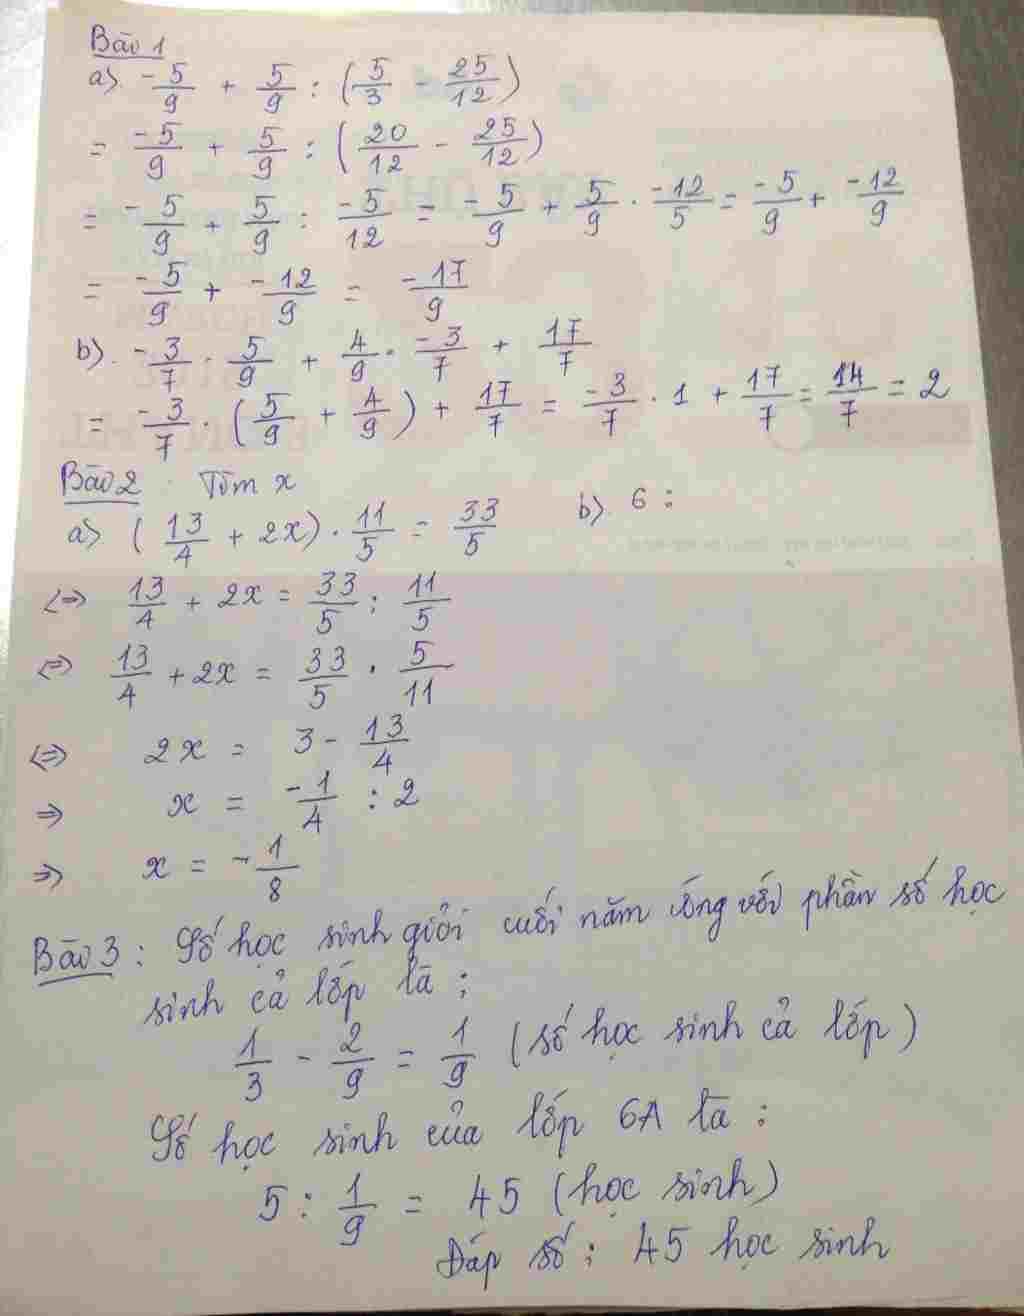 Bài 1
a) -5/9 + 5/9 : (5/3 - 25/12)
= -5/9 + 5/9 : (20/12 - 25/12)
= -5/9 + 5/9 : -5/12 = -5/9 + 5/9 . -12/5 = -5/9 + -12/9
= -5/9 + -12/9 = -17/9
b) -3/7 . 5/9 + 4/9 . -3/7 + 17/7
= -3/7 . (5/9 + 4/9) + 17/7 = -3/7 . 1 + 17/7 = 14/7 = 2
Bài 2 Tìm x
a) (13/4 + 2x) . 11/5 = 33/5 b) 6 :
<=> 13/4 + 2x = 33/5 : 11/5
<=> 13/4 + 2x = 33/5 . 5/11
<=> 2x = 3 - 13/4
=> x = -1/4 : 2
=> x = -1/8
Bài 3 : Số học sinh giỏi cuối năm ứng với phần số học
sinh cả lớp là :
1/3 - 2/9 = 1/9 (số học sinh cả lớp)
Số học sinh của lớp 6A là :
5 : 1/9 = 45 (học sinh)
Đáp số : 45 học sinh